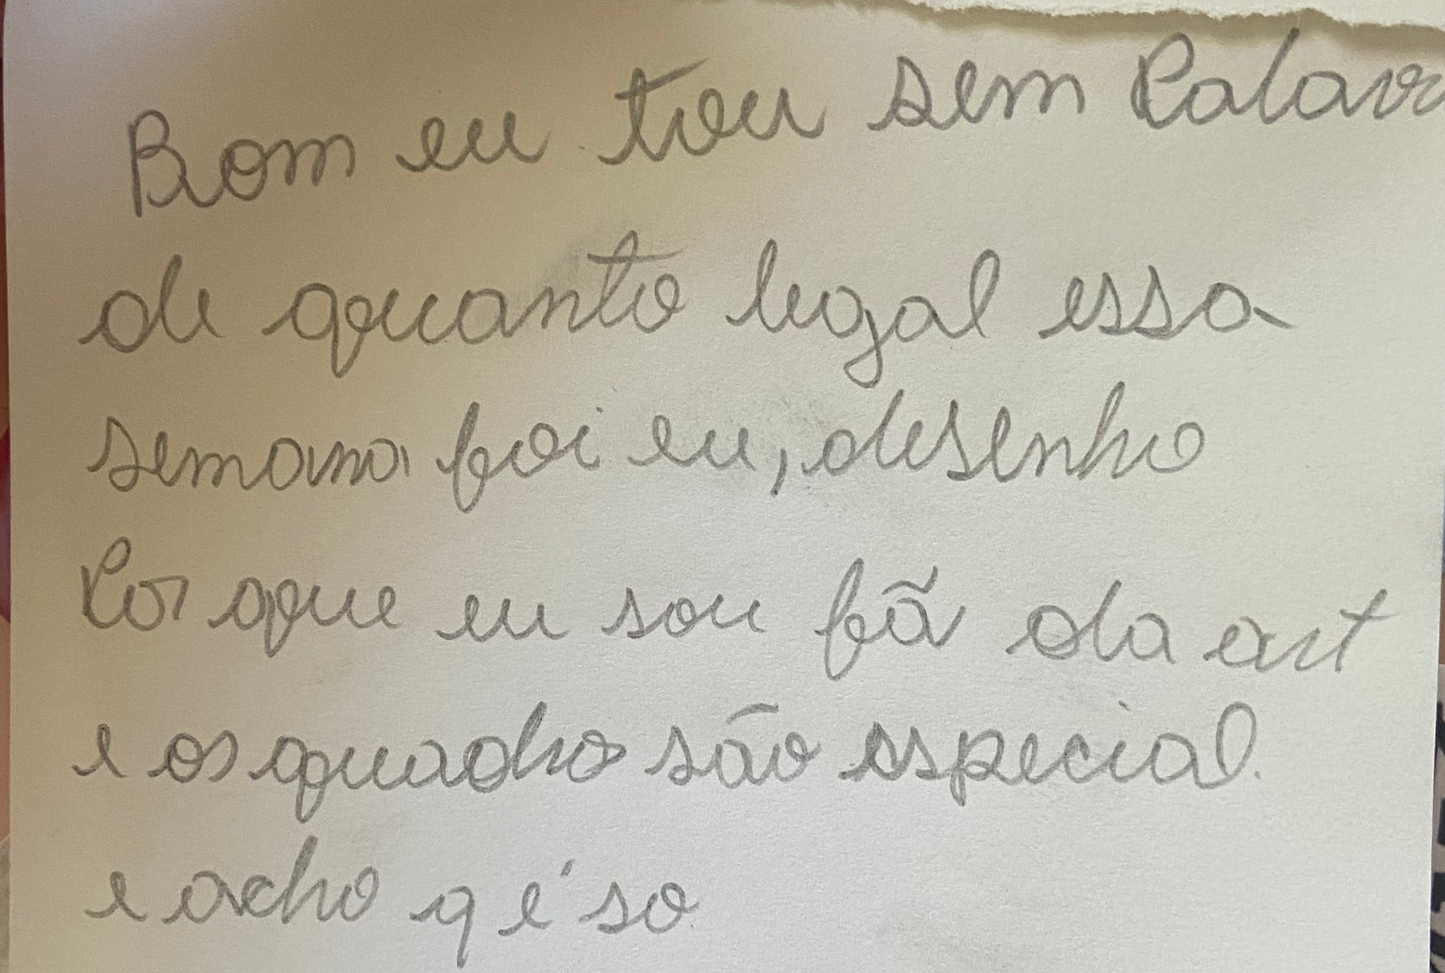 Bom eu tou sem Palavr
de quanto legal essa
semana foi eu, desenho
Por que eu sou fã da art
e os quadros são especial.
e acho q é so